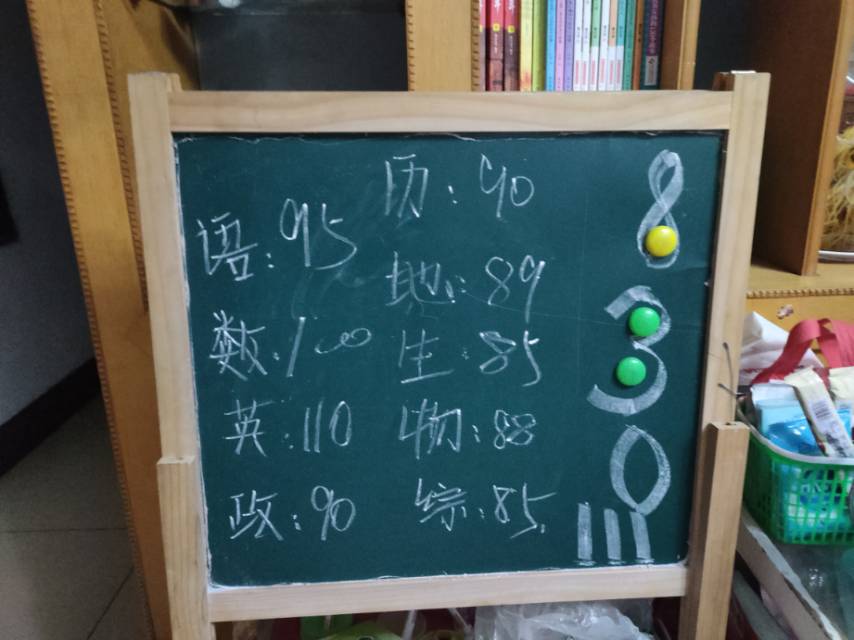 语:95
数:100
英:110
政:90
历:90
地:89
生:85
物:88
综:85.
830
111